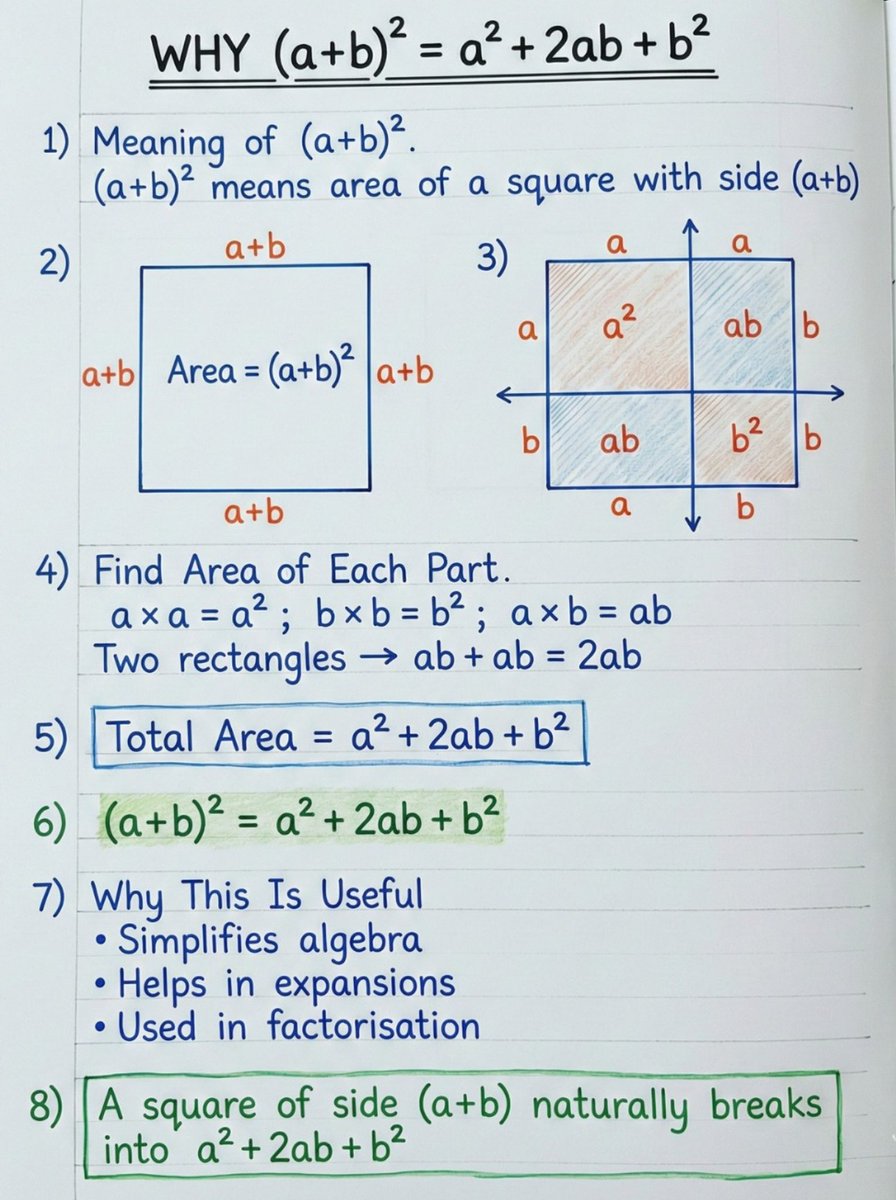 WHY (a+b)² = a² + 2ab + b²
1) Meaning of (a+b)².
(a+b)² means area of a square with side (a+b)
2)
a+b
a+b
Area = (a+b)²
a+b
a+b
3)
a
a
a
a²
ab
b
b
ab
b²
b
a
b
4) Find Area of Each Part.
a × a = a² ; b × b = b² ; a × b = ab
Two rectangles → ab + ab = 2ab
5) Total Area = a² + 2ab + b²
6) (a+b)² = a² + 2ab + b²
7) Why This Is Useful
• Simplifies algebra
• Helps in expansions
• Used in factorisation
8) A square of side (a+b) naturally breaks
into a² + 2ab + b²